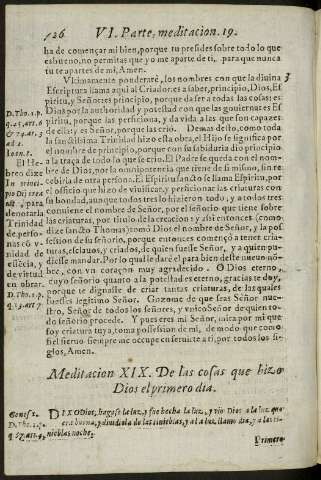 126 VI. Parte, meditacion. 19.
ha de començar mi bien, porque tu presides sobre todo lo que
es bueno, no permitas que yo me aparte de ti, para que nunca
tu te apartes de mi, Amen.
Vltimamente ponderarè, los nombres con que la diuina
Escriptura llama aqui al Criador: es a saber, principio, Dios, Es
piritu, y Señor: es principio, porque da ser a todas las cosas: es
Dios por la authoridad y potestad con que las gouierna: es Es
piritu, porque las perficiona, y da vida a las que son capazes
de ella: y es Señor, porque las criò. Demas desto, como toda
la sanctissima Trinidad hizo esta obra, el Hijo se significa por
el nombre de principio, porque con su sabiduria dio principio
a la traça de todo lo que se criò. El Padre se queda con el nom-
bre de Dios, por la omnipotencia que tiene de si mismo, sin re
cebirla de otra persona. El Espiritu sancto se llama Espiritu, por
el officio que hizo de viuificar, y perficionar las criaturas con
su bondad, aunque todos tres lo hizieron todo, y a todos tres
conuiene el nombre de Señor, por el señorio que tiene sobre
las criaturas, por titulo de la creacion y assi entonces (como
dize sancto Thomas) tomò Dios el nombre de Señor, y la pos
session de su señorio, porque entonces començò a tener cria-
turas, esclauos, y criados, de quien fuesse Señor, y a quien pu-
diesse mandar. Por lo qual le darè el para bien deste nueuo nõ-
bre, con vn coraçon muy agradecido. O Dios eterno,
cuyo señorio quanto a la potestad es eterno, gracias te doy,
porque te dignaste de criar tantas criaturas, de las quales
fuesses legitimo Señor. Gozome de que seas Señor nue-
stro, Señor de todos los señores, y vnico Señor de quien to-
do señorio procede. Y pues eres mi Señor, mira por mi que
soy criatura tuya, toma possession de mi, de modo que como
fiel sieruo siempre me occupe en seruirte a ti, por todos los si-
glos, Amen.
3
D. Tho. 1. p.
El He-
breo dize
denotar la
Trinidad
de perso-
nas cõ v-
nidad de
essẽcia, y
de virtud
en obrar.
D. Tho. 1. p.
Meditacion XIX. De las cosas que hizo
Dios el primero dia.
Genes. 1.
D. Tho. 1. p.
DIXO Dios, hagase la luz, y fue hecha la luz, y vio Dios a la luz que
era buena, y diuidiola de las tinieblas, y a la luz llamò dia, y a las ti-
nieblas noche.
Primero